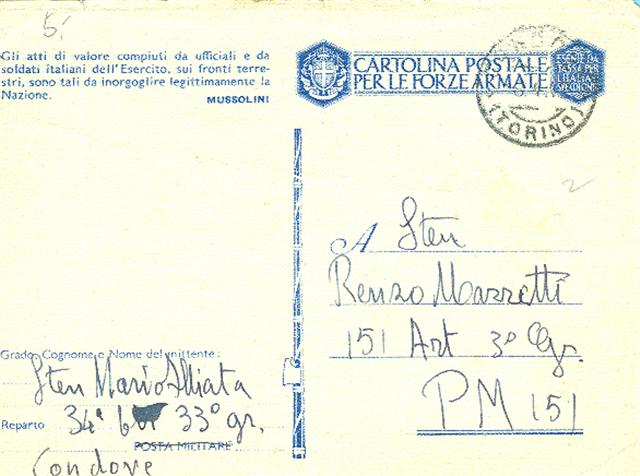 5,
Gli atti di valore compiuti da ufficiali e da
soldati italiani dell'Esercito, sui fronti terre-
stri, sono tali da inorgoglire legittimamente la
Nazione.
MUSSOLINI
CARTOLINA POSTALE
PER LE FORZE ARMATE
ESENTE DA
TASSA PER
L'ITALIA
(TORINO)
2
A Sten
Renzo Mazzetti
151 Art 3° Gr.
PM 151
Grado, Cognome e Nome del mittente:
Sten Mario Alliata
Reparto 34a 33° gr.
POSTA MILITARE
Condove